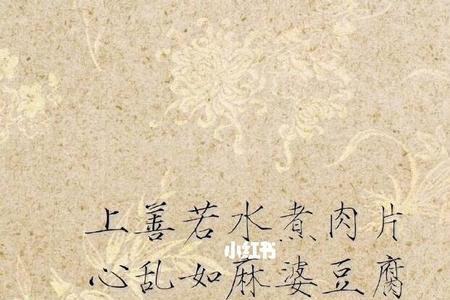 上善若水煮肉片
小红书
心乱如麻婆豆腐